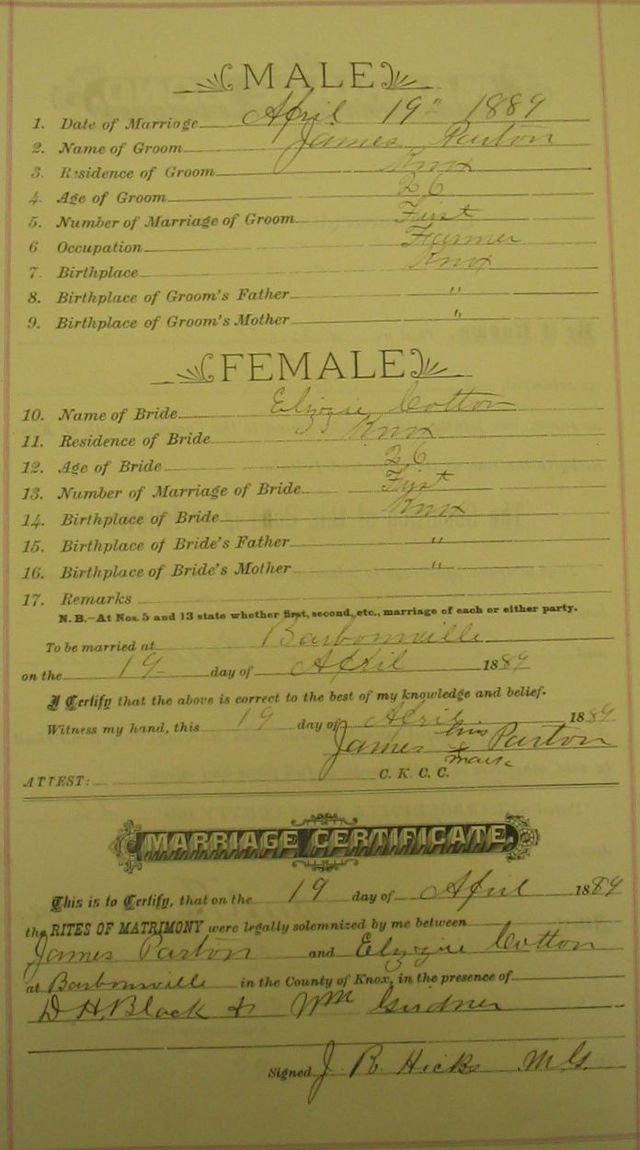 MALE
1. Date of Marriage April 19" 1889
2. Name of Groom James Parton
3. Residence of Groom Knox
4. Age of Groom 26
5. Number of Marriage of Groom First
6 Occupation Farmer
7. Birthplace Knox
8. Birthplace of Groom's Father "
9. Birthplace of Groom's Mother "
FEMALE
10. Name of Bride Elizzie Cotton
11. Residence of Bride Knox
12. Age of Bride 26
13. Number of Marriage of Bride First
14. Birthplace of Bride Knox
15. Birthplace of Bride's Father "
16. Birthplace of Bride's Mother "
17. Remarks
N. B.—At Nos. 5 and 13 state whether first, second, etc., marriage of each or either party.
To be married at Barbourville
on the 19 day of April 1889
I Certify that the above is correct to the best of my knowledge and belief.
Witness my hand, this 19 day of April 1889
James his x mark Parton
ATTEST: C. K. C. C.
MARRIAGE CERTIFICATE.
This is to Certify, that on the 19 day of April 1889
the RITES OF MATRIMONY were legally solemnized by me between
James Parton and Elizzie Cotton
at Barbourville in the County of Knox, in the presence of
D. H. Black & Wm Girdner
Signed J. R. Hicks M. G.